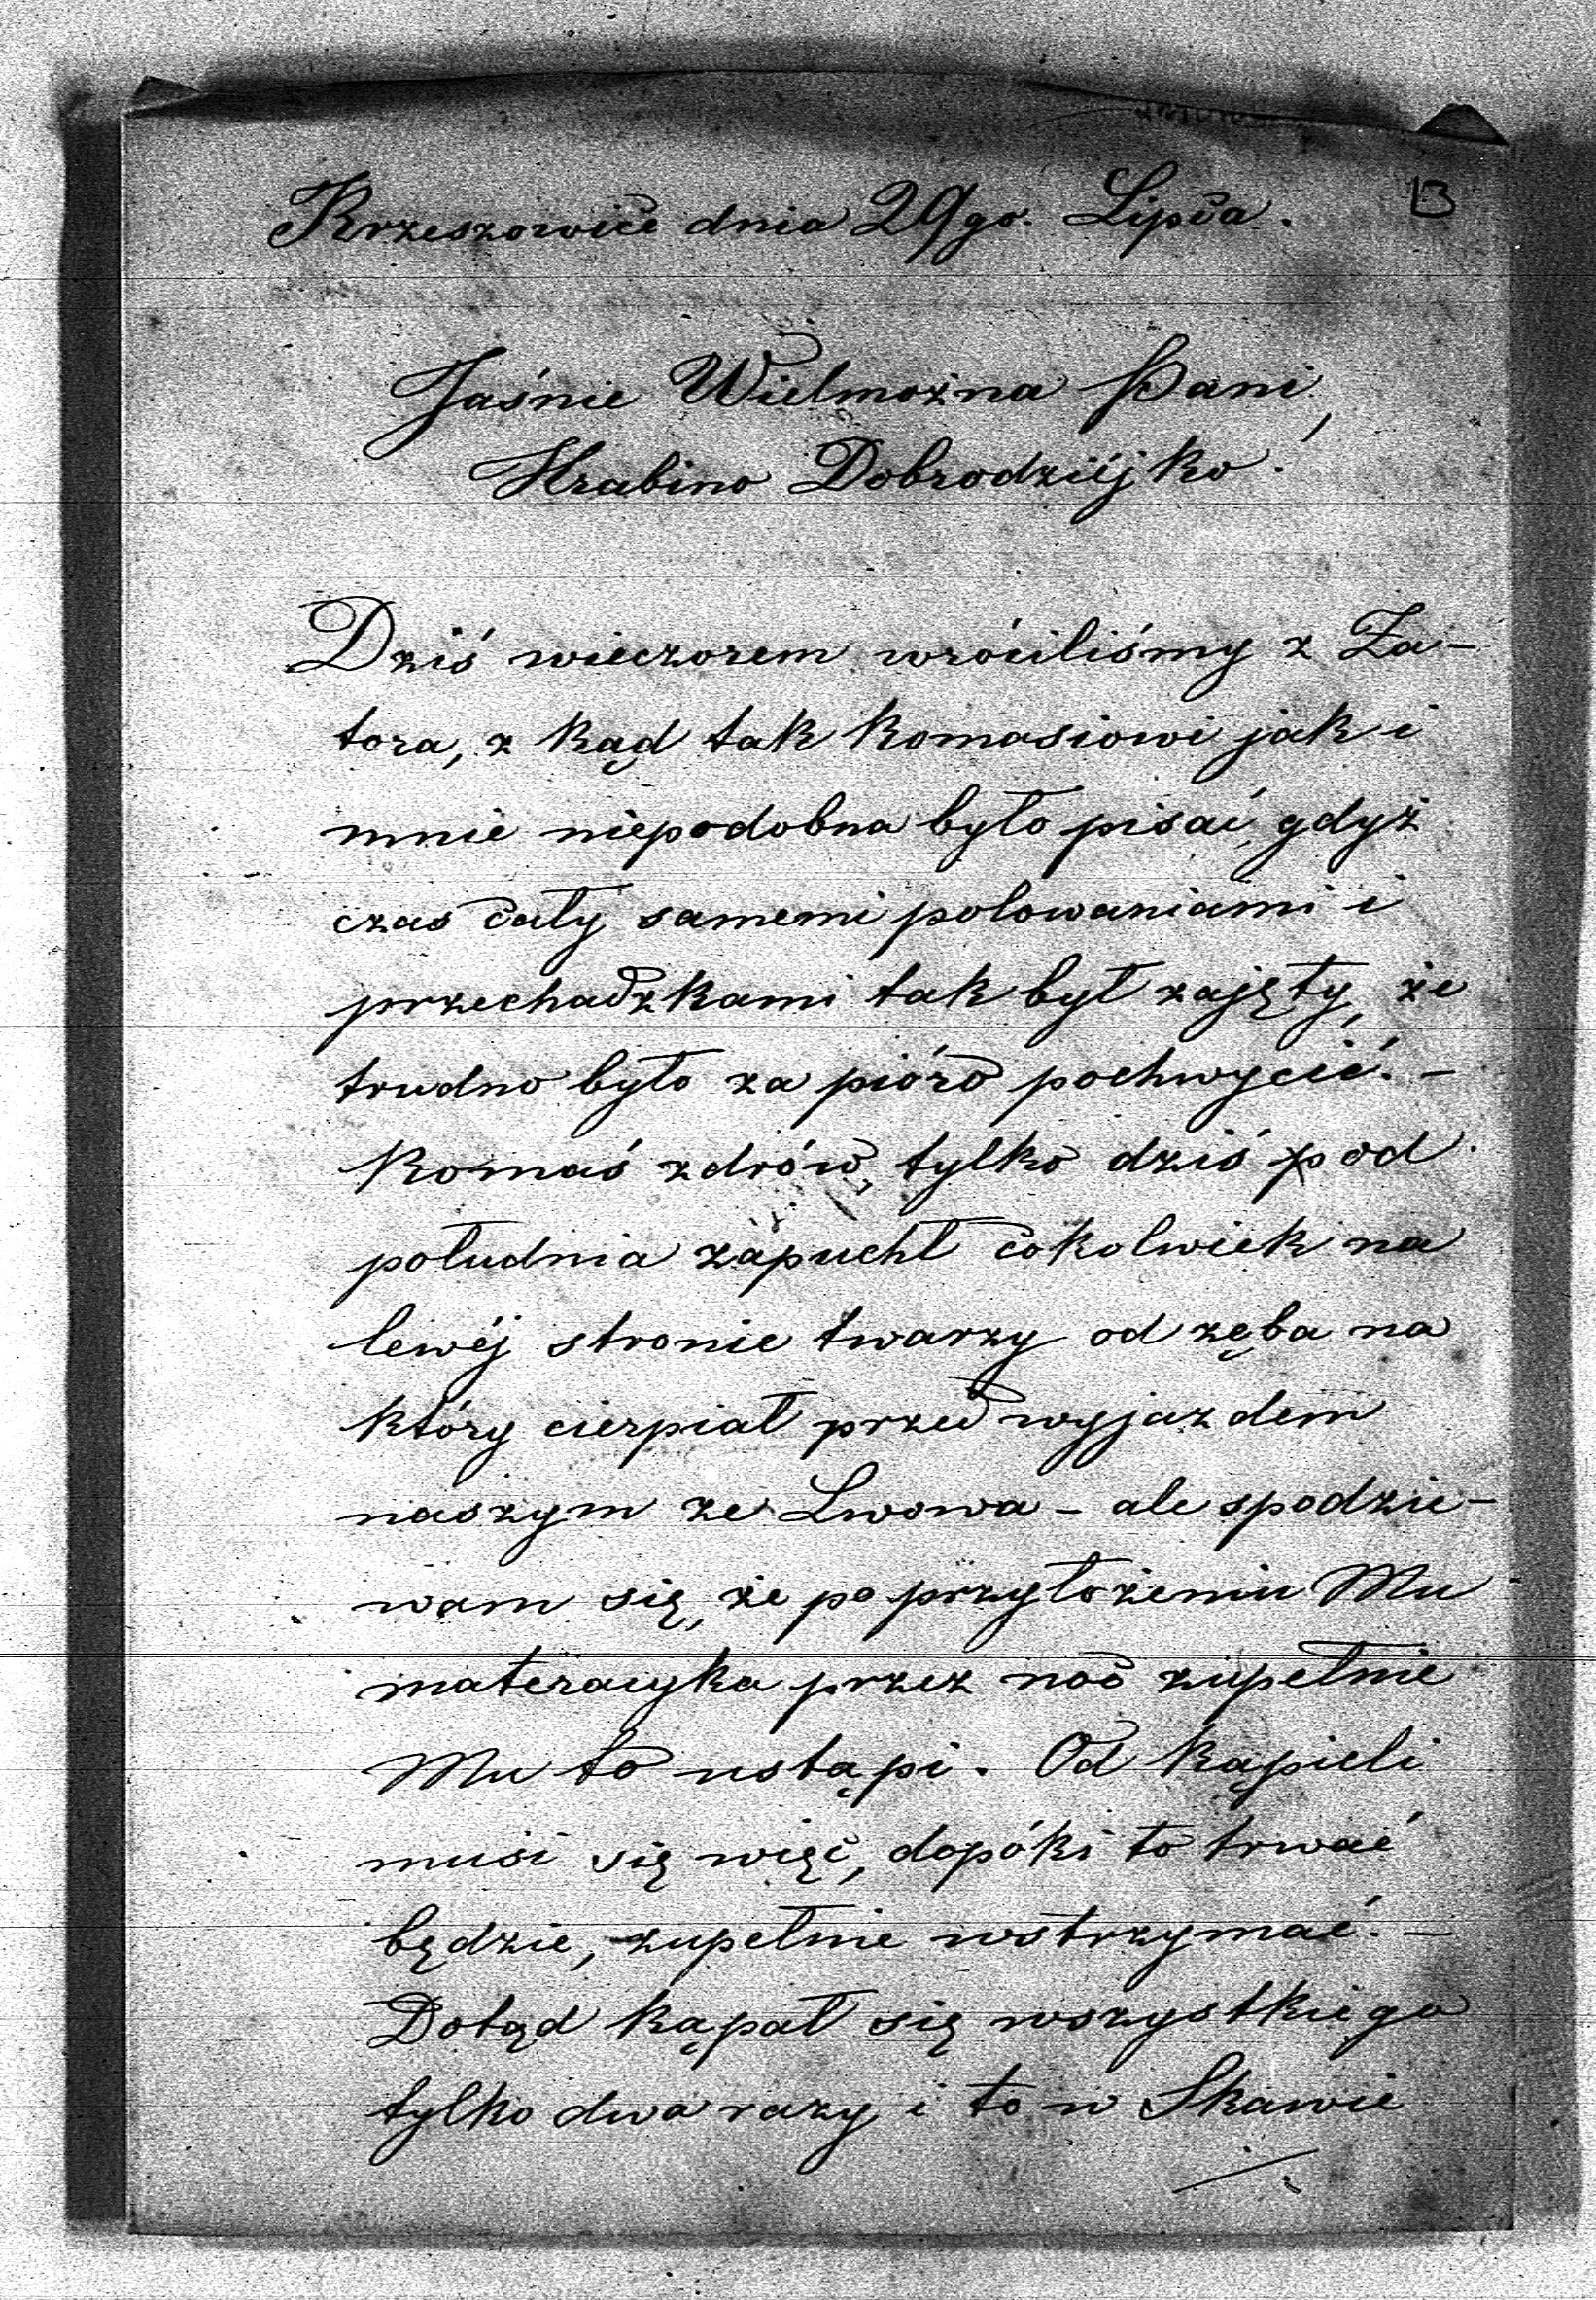 13
Krzeszowice dnia 29go. Lipca.
Jaśnie Wielmożna Pani,
Hrabino Dobrodziéjko!
Dziś wieczorem wróciliśmy z Za-
tora, z kąd tak Romasiowi jak i
mnie niepodobna było pisać, gdyż
czas cały samemi polowaniami i
przechadzkami tak był zajęty, że
trudno było za pióro pochwycić. –
Romaś zdrów, tylko dziś pod
południa zapuchł cokolwiek na
lewéj stronie twarzy od zęba na
który cierpiał przed wyjazdem
naszym ze Lwowa – ale spodzie-
wam się, że po przyłożeniu Mu
materacyka przez noc zupełnie
Mu to ustąpi. Od kąpieli
musi się więc, dopóki to trwać
będzie, zupełnie wstrzymać. –
Dotąd kąpał się wszystkiego
tylko dwa razy i to w Skawie